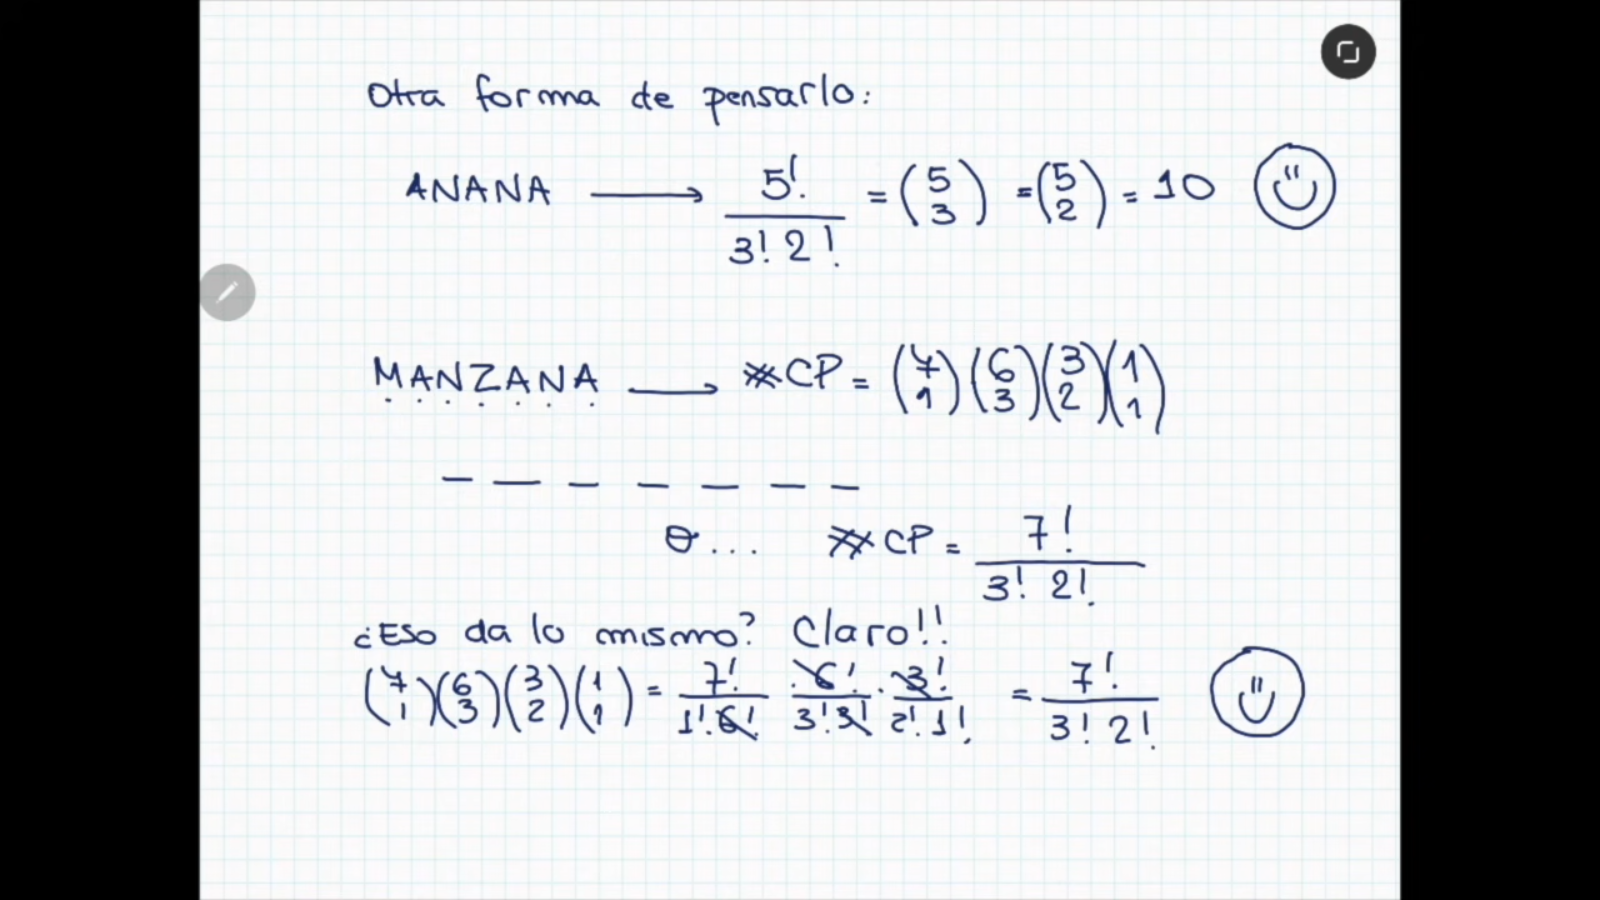 Otra forma de pensarlo:
ANANA → 5! / 3! 2! = (5 3) = (5 2) = 10
MANZANA → #CP = (7 1)(6 3)(3 2)(1 1)
_ _ _ _ _ _ _
O... #CP = 7! / 3! 2!
¿Eso da lo mismo? Claro!!
(7 1)(6 3)(3 2)(1 1) = 7! / 1! 6! · 6! / 3! 3! · 3! / 2! 1! = 7! / 3! 2!